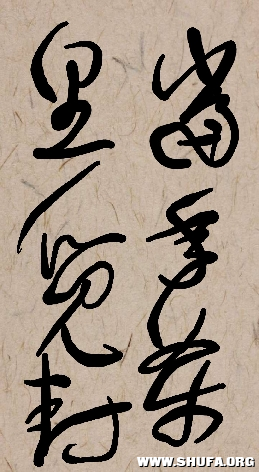 當年萬
里覓封
WWW.SHUFA.ORG